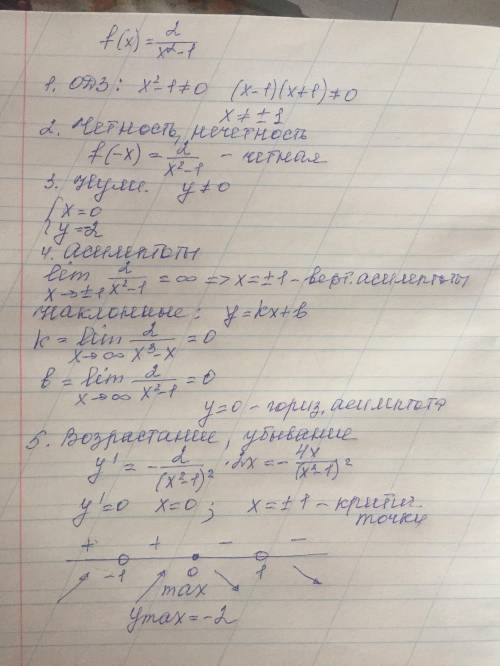 f(x) = 2/(x²-1)
1. ОДЗ: x²-1≠0 (x-1)(x+1)≠0
x≠±1
2. Четность, нечетность
f(-x) = 2/(x²-1) - четная
3. Нули. y≠0
{x=0
{y=2
4. Асимптоты
lim x→±1 2/(x²-1) = ∞ => x=±1 - верт. асимптоты
Наклонные: y=kx+b
k = lim x→∞ 2/(x³-x) = 0
b = lim x→∞ 2/(x²-1) = 0
y=0 - гориз. асимптота
5. Возрастание, убывание
y' = - 2/(x²-1)² · 2x = - 4x/(x²-1)²
y'=0 x=0; x=±1 - критич.
точки
+ + - -
-1 0 1
max
ymax=-2